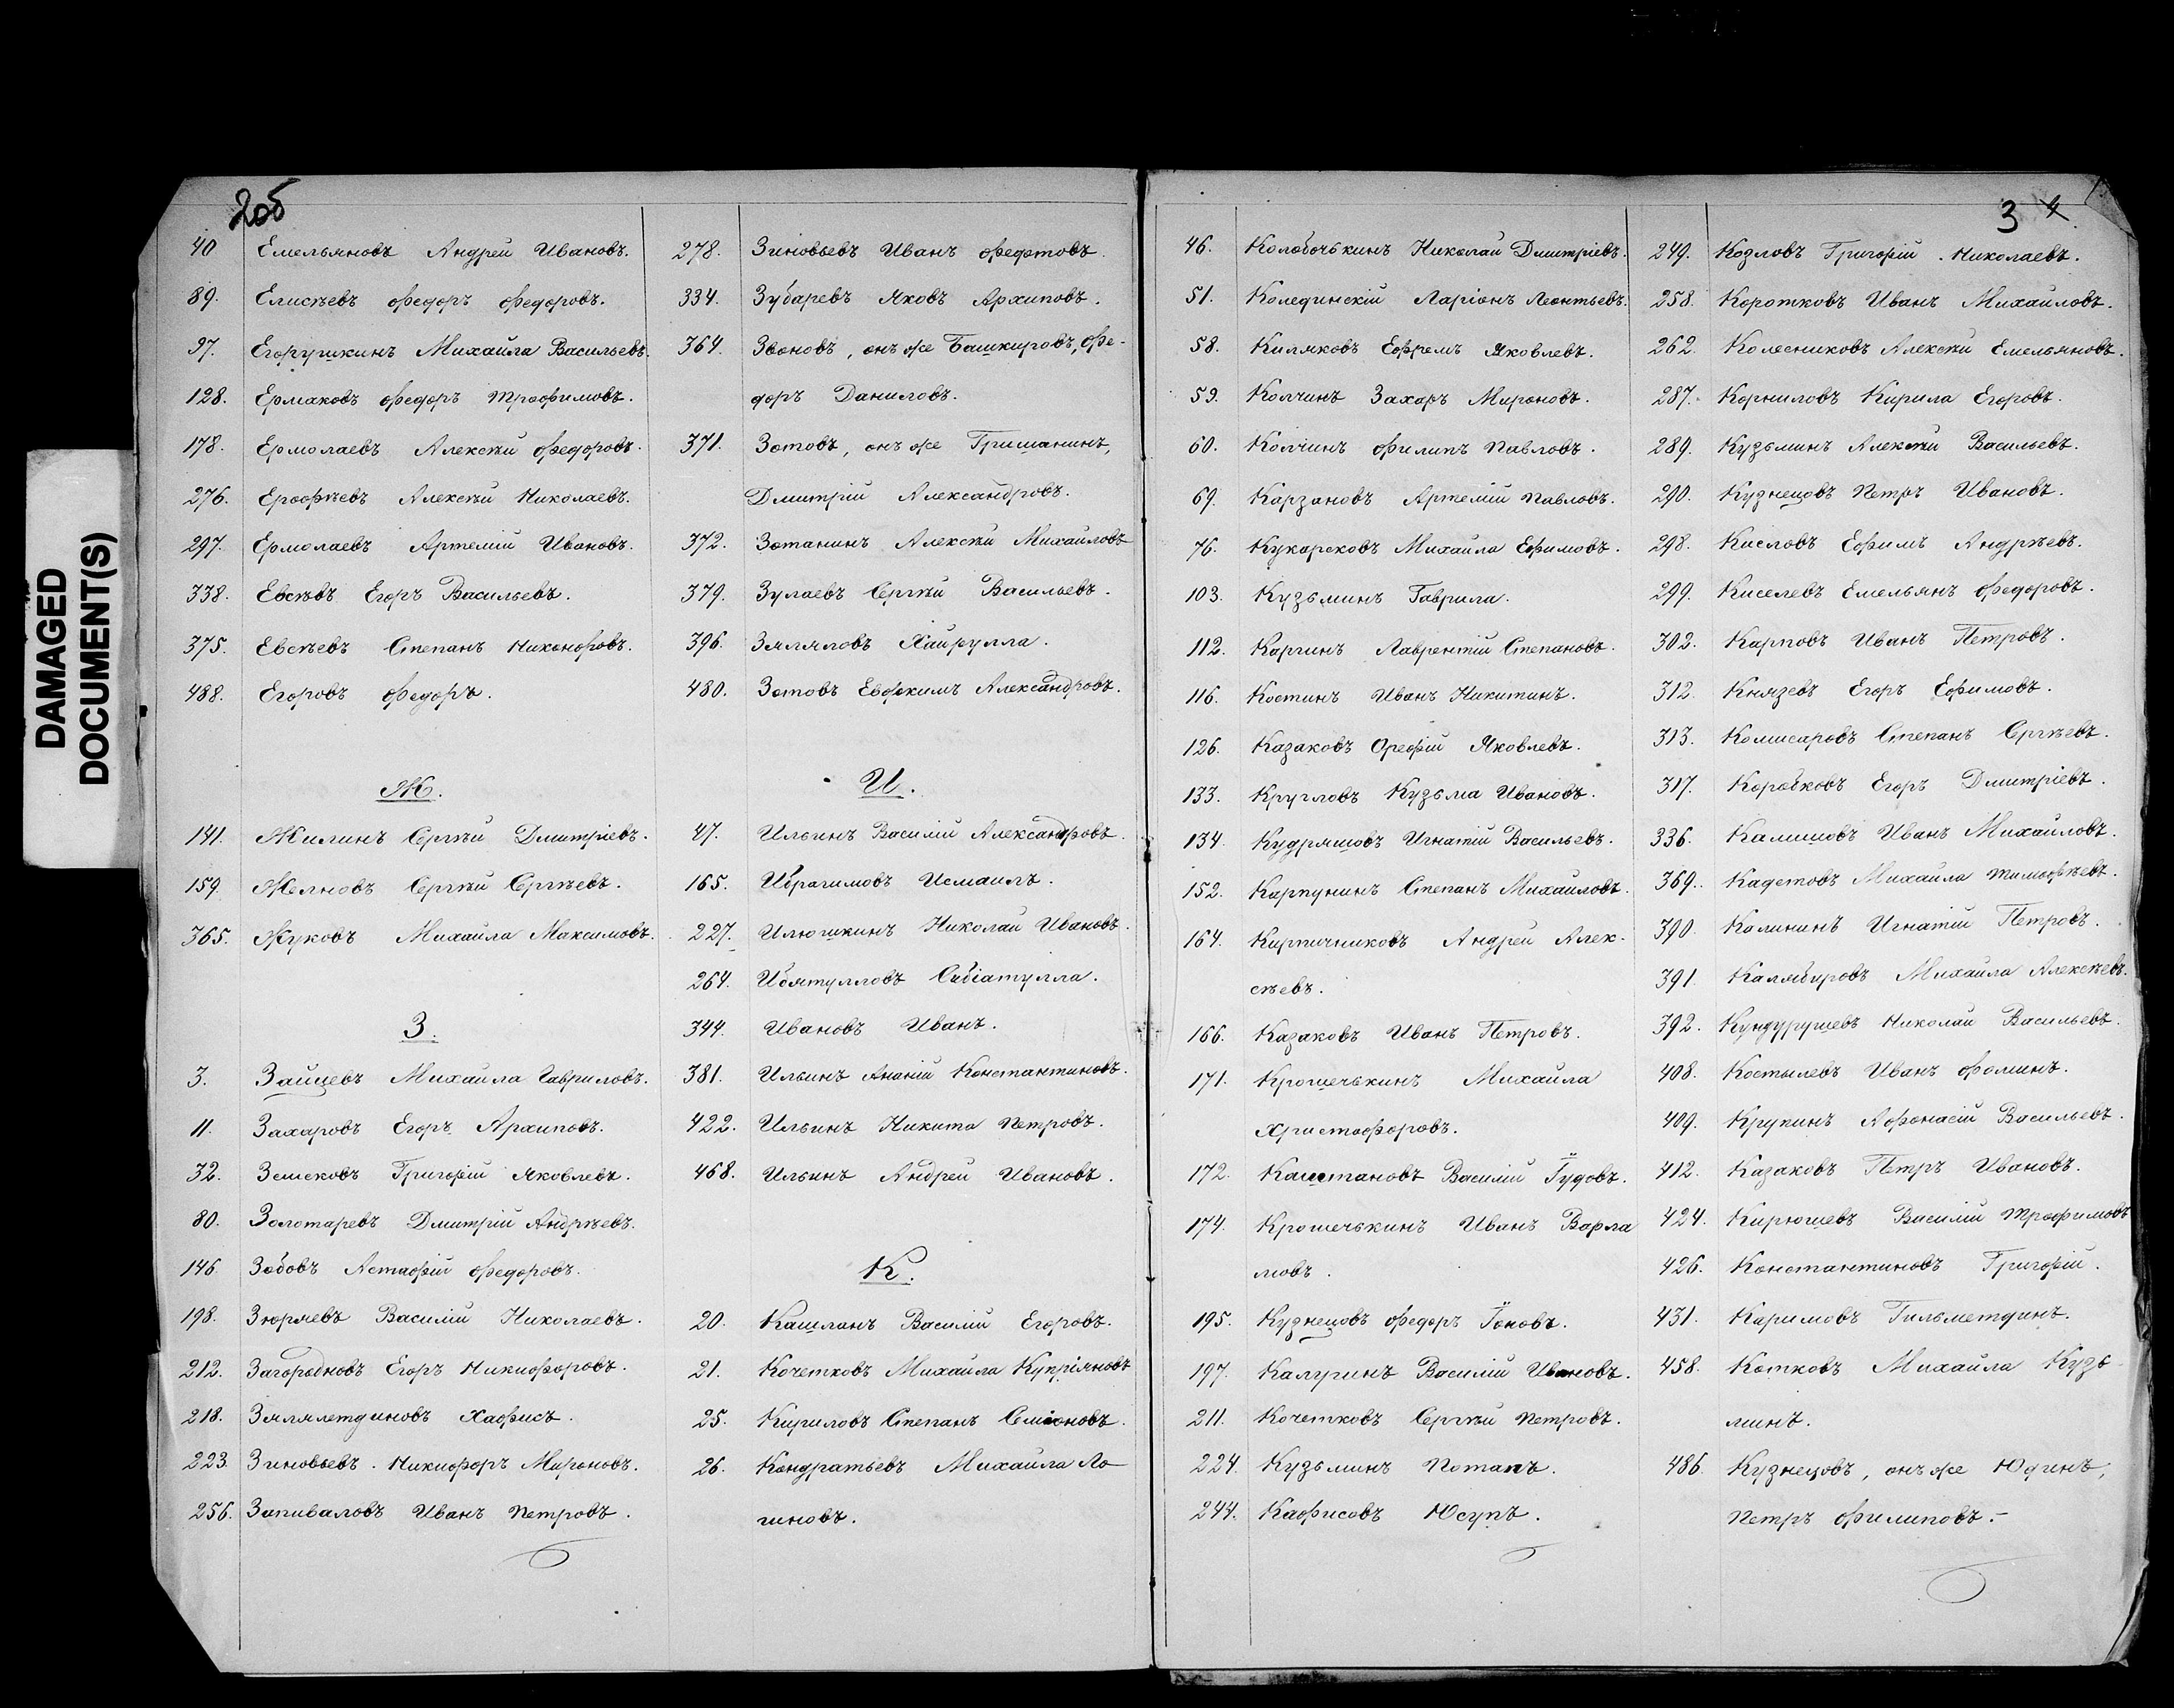 DAMAGED
DOCUMENT(S)
2об
40 Емельяновъ Андрей Ивановъ.
89. Елисѣевъ Федоръ Федоровъ.
97. Егорушкинъ Михайла Васильевъ.
128. Ермаковъ Федоръ Трофимовъ.
178. Ермолаевъ Алексѣй Федоровъ.
276. Ерофѣевъ Алексѣй Николаевъ.
297. Ермолаевъ Артемій Ивановъ.
338. Евсѣвъ Егоръ Васильевъ.
375. Евсѣевъ Степанъ Никоноровъ.
488. Егоровъ Федоръ.
Ж.
141. Жилинъ Сергѣй Дмитріевъ.
159. Желновъ Сергѣй Сергѣевъ.
365. Жуковъ Михайла Максимовъ.
З.
3. Зайцевъ Михайла Гавриловъ.
11. Захаровъ Егоръ Архиповъ.
32. Земсковъ Григорій Яковлевъ.
80. Золотаревъ Дмитрій Андрѣевъ.
146. Зобовъ Астафій Федоровъ.
198. Зюряевъ Василій Николаевъ.
212. Загородновъ Егоръ Никифоровъ.
218. Зялялетдиновъ Хафисъ.
223. Зиновьевъ. Никифоръ Мироновъ.
256. Запиваловъ Иванъ Петровъ.
278. Зиновьевъ Иванъ Федотовъ.
334. Зубаревъ Яковъ Архиповъ.
364. Звоновъ, онъ же Башкировъ, Фе-
доръ Даниловъ.
371. Зотовъ, онъ же Гришанинъ,
Дмитрій Александровъ.
372. Зотанинъ Алексѣй Михайловъ
379. Зулаевъ Сергѣй Васильевъ.
396. Зяляловъ Хайрулла.
480. Зотовъ Евфкимъ Александровъ.
И.
47. Ильинъ Василій Александровъ.
165. Ибрагимовъ Исмаилъ.
227. Илюшкинъ Николай Ивановъ.
264. Ибятулловъ Сибіатулла.
344. Ивановъ Иванъ.
381. Ильинъ Ананій Константиновъ.
422. Ильинъ Никита Петровъ.
468. Ильинъ Андрей Ивановъ.
К.
20. Кашланъ Василій Егоровъ.
21. Кочетковъ Михайла Купріяновъ
25. Кириловъ Степанъ Семіоновъ.
26. Кондратьевъ Михайла Ло
гиновъ.
3 4
46. Колобочькинъ Николай Дмитріевъ.
51. Колединскій Ларіонъ Леонтьевъ.
58. Киляковъ Ефремъ Яковлевъ.
59. Колчинъ Захаръ Мироновъ.
60. Колчинъ Филипъ Павловъ.
69. Карзановъ Артемій Павловъ.
76. Кукарсковъ Михайла Ефимовъ.
103. Кузьминъ Гаврила.
112. Каргинъ Лаврентій Степановъ.
116. Костинъ Иванъ Никитинъ.
126. Казаковъ Орефій Яковлевъ.
133. Кругловъ Кузьма Ивановъ.
134. Кудряшовъ Игнатій Васильевъ.
152. Карпунинъ Степанъ Михайловъ.
164. Кирпичниковъ Андрей Алек-
сѣевъ.
166. Казаковъ Иванъ Петровъ.
171. Крошечькинъ Михайла
Христофоровъ.
172. Каштановъ Василій Їудовъ.
174. Крошечькинъ Иванъ Варла
мовъ.
195. Кузнецовъ Федоръ Їоновъ.
197. Калугинъ Василій Ивановъ.
211. Кочетковъ Сергѣй Петровъ.
224. Кузьминъ Потапъ.
244. Кафисовъ Юсупъ.
249. Козловъ Григорій. Николаевъ.
258. Коротковъ Иванъ Михайловъ.
262. Колесниковъ Алексѣй Емельяновъ.
287. Корниловъ Кирила Егоровъ.
289. Кузьминъ Алексѣй Васильевъ.
290. Кузнецовъ Петръ Ивановъ.
298. Кисловъ Ефимъ Андрѣевъ.
299. Киселевъ Емельянъ Федоровъ.
302. Карповъ Иванъ Петровъ.
312. Князевъ Егоръ Ефимовъ.
313. Комисаровъ Степанъ Сергѣевъ.
317. Коробковъ Егоръ Дмитріевъ.
336. Калишовъ Иванъ Михайловъ.
369. Кадетовъ Михайла Тимофѣевъ.
390. Калининъ Игнатій Петровъ.
391. Калябуровъ Михайла Алексѣевъ.
392. Кундурушевъ Николай Васильевъ.
408. Костылевъ Иванъ Фоминъ.
409. Крупинъ Афонасій Васильевъ.
412. Казаковъ Петръ Ивановъ.
424. Кирюшевъ Василій Трофимовъ
426. Константиновъ Григорій.
431. Каримовъ Гильметдинъ.
458. Котковъ Михайла Кузь-
минъ.
486. Кузнецовъ, онъ же Юдинъ,
Петръ Филиповъ.-